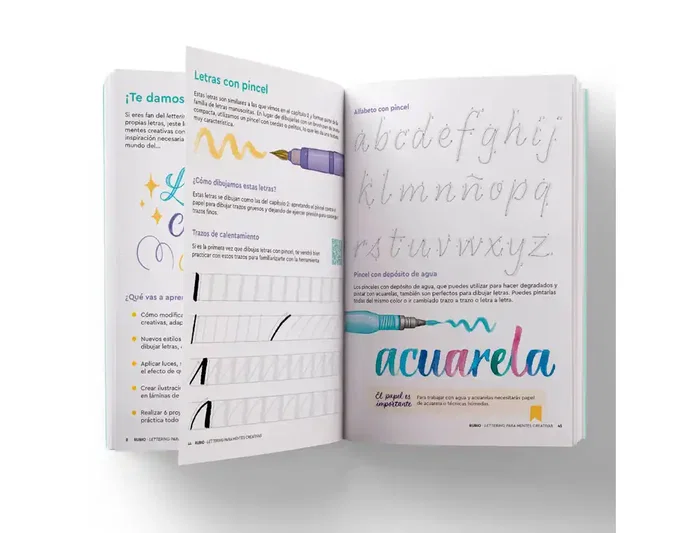 ¡Te damos
Si eres fan del letterin
propias letras, ¡este l
mentes creativas con
inspiración necesaria
mundo del...
¿Qué vas a apren
Cómo modifica
creativas, adap
Nuevos estilos
dibujar letras,
Aplicar luces,
el efecto de q
Crear ilustracio
en láminas de
Realizar 6 proy
práctica todo
LETTERING PARA
Letras con pincel
Estas letras son similares a las que vimos en el capítulo 2 y forman parte de la
familia de letras manuscritas. En lugar de dibujarlas con un
compacta, utilizamos un pincel con cerdas o pelitos, lo que les da
muy característica.
¿Cómo dibujamos estas letras?
Estas letras se dibujan como las del capítulo 2: apretando el pincel contra el
papel para dibujar trazos gruesos y dejando de ejercer presión para
trazos finos.
Trazos de calentamiento
Si es la primera vez que dibujas letras con pincel, te vendrá bien
practicar con estos trazos para familiarizarte con la herramienta
RUBIO · LETTERING PARA MENTES CREATIVAS
Alfabeto con pincel
a b c d e f g h i j
k l m n ñ o p q
r s t u v w x y z
Pincel con depósito de agua
Los pinceles con depósito de agua, que puedes utilizar para hacer degradados y
pintar con acuarelas, también son perfectos para dibujar letras. Puedes pintarlas
todas del mismo color o ir cambiado trazo a trazo o letra a letra.
acuarela
El papel es
importante
Para trabajar con agua y acuarelas necesitarás papel
de acuarela o técnicas húmedas.
RUBIO · LETTERING PARA MENTES CREATIVAS